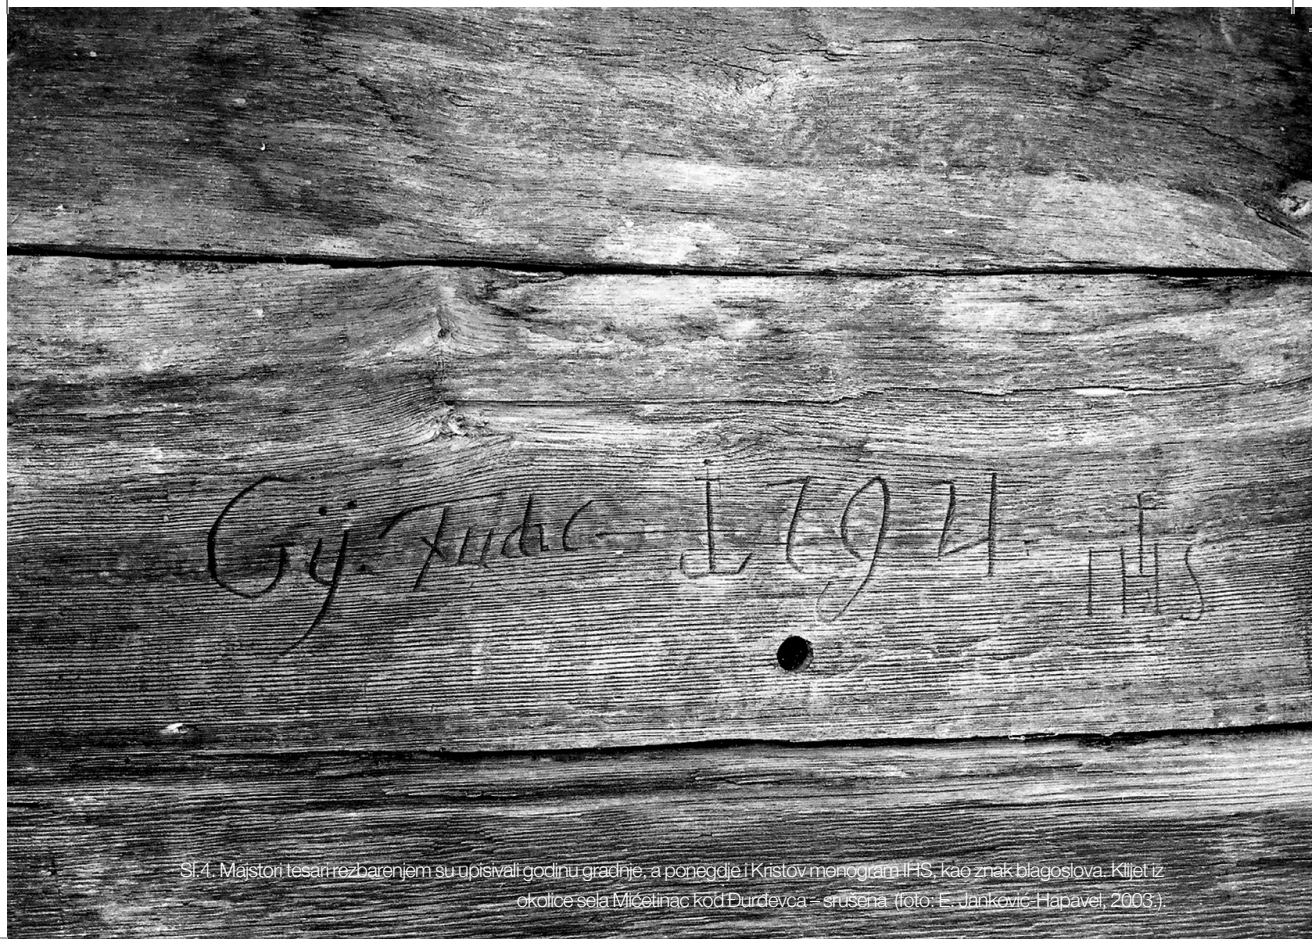 1794. IHS
Sl.4. Majstori tesari rezbarenjem su upisivali godinu gradnje, a ponegdje i Kristov monogram IHS, kao znak blagoslova. Klijet iz
okolice sela Mičetinac kod Đurđevca – srušena (foto: E. Janković-Hapavel, 2003.).